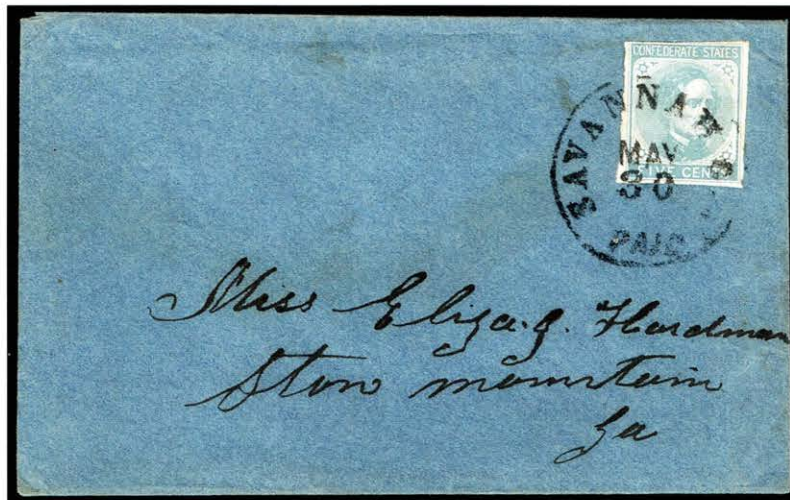 CONFEDERATE STATES
FIVE CENTS
SAVANNAH
MAY
30
PAID
Miss Eliza. J. Hardman
Ston mountain
Ga